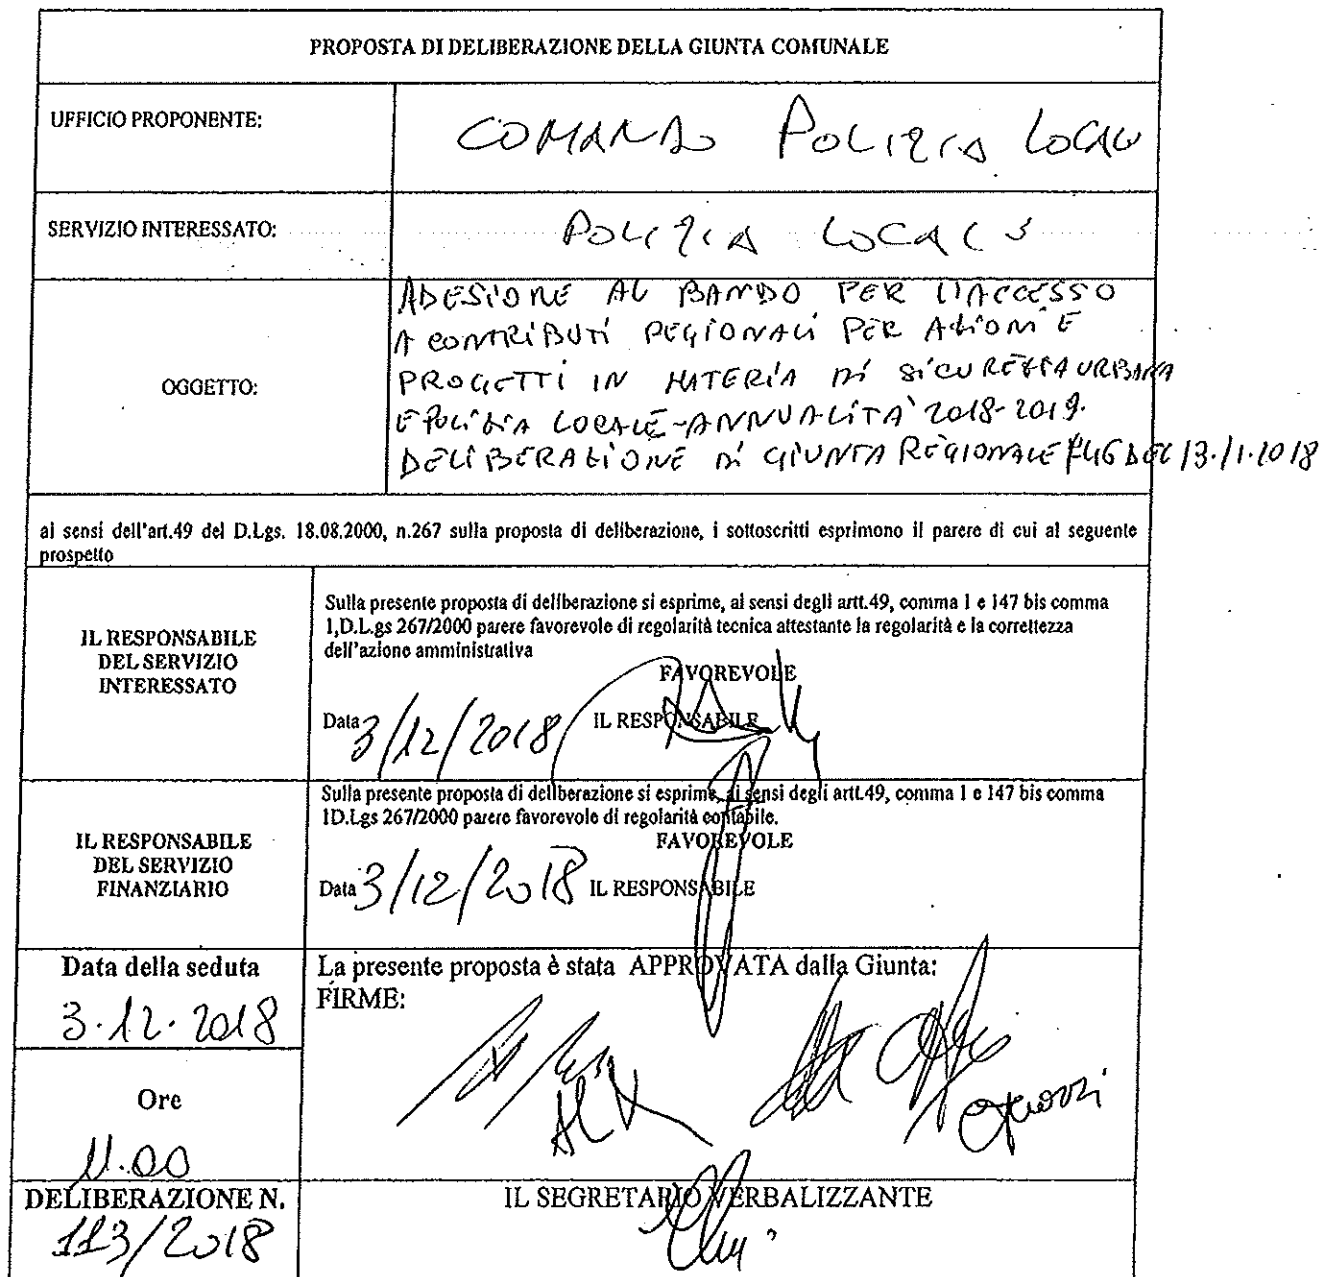 PROPOSTA DI DELIBERAZIONE DELLA GIUNTA COMUNALE
UFFICIO PROPONENTE:
COMANDO POLIZIA LOCALE
SERVIZIO INTERESSATO:
POLIZIA LOCALE
OGGETTO:
ADESIONE AL BANDO PER L'ACCESSO
A CONTRIBUTI REGIONALI PER AZIONI E
PROGETTI IN MATERIA DI SICUREZZA URBANA
E POLIZIA LOCALE-ANNUALITÀ 2018-2019.
DELIBERAZIONE DI GIUNTA REGIONALE DEL 13.11.2018
ai sensi dell'art.49 del D.Lgs. 18.08.2000, n.267 sulla proposta di deliberazione, i sottoscritti esprimono il parere di cui al seguente
prospetto
IL RESPONSABILE
DEL SERVIZIO
INTERESSATO
Sulla presente proposta di deliberazione si esprime, ai sensi degli artt.49, comma 1 e 147 bis comma
1,D.L.gs 267/2000 parere favorevole di regolarità tecnica attestante la regolarità e la correttezza
dell'azione amministrativa
FAVOREVOLE
Data 3/12/2018 IL RESPONSABILE
IL RESPONSABILE
DEL SERVIZIO
FINANZIARIO
Sulla presente proposta di deliberazione si esprime, ai sensi degli artt.49, comma 1 e 147 bis comma
1D.Lgs 267/2000 parere favorevole di regolarità contabile.
FAVOREVOLE
Data 3/12/2018 IL RESPONSABILE
Data della seduta
3.12.2018
La presente proposta è stata APPROVATA dalla Giunta:
FIRME:
Ore
11.00
DELIBERAZIONE N.
113/2018
IL SEGRETARIO VERBALIZZANTE